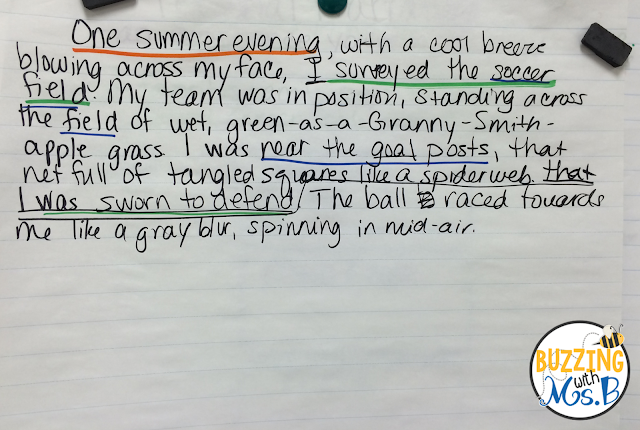 One summer evening, with a cool breeze
blowing across my face, I surveyed the soccer
field. My team was in position, standing across
the field of wet, green-as-a-Granny-Smith-
apple grass. I was near the goal posts, that
net full of tangled squares like a spiderweb that
I was sworn to defend. The ball raced towards
me like a gray blur, spinning in mid-air.
BUZZING
with
Ms.B